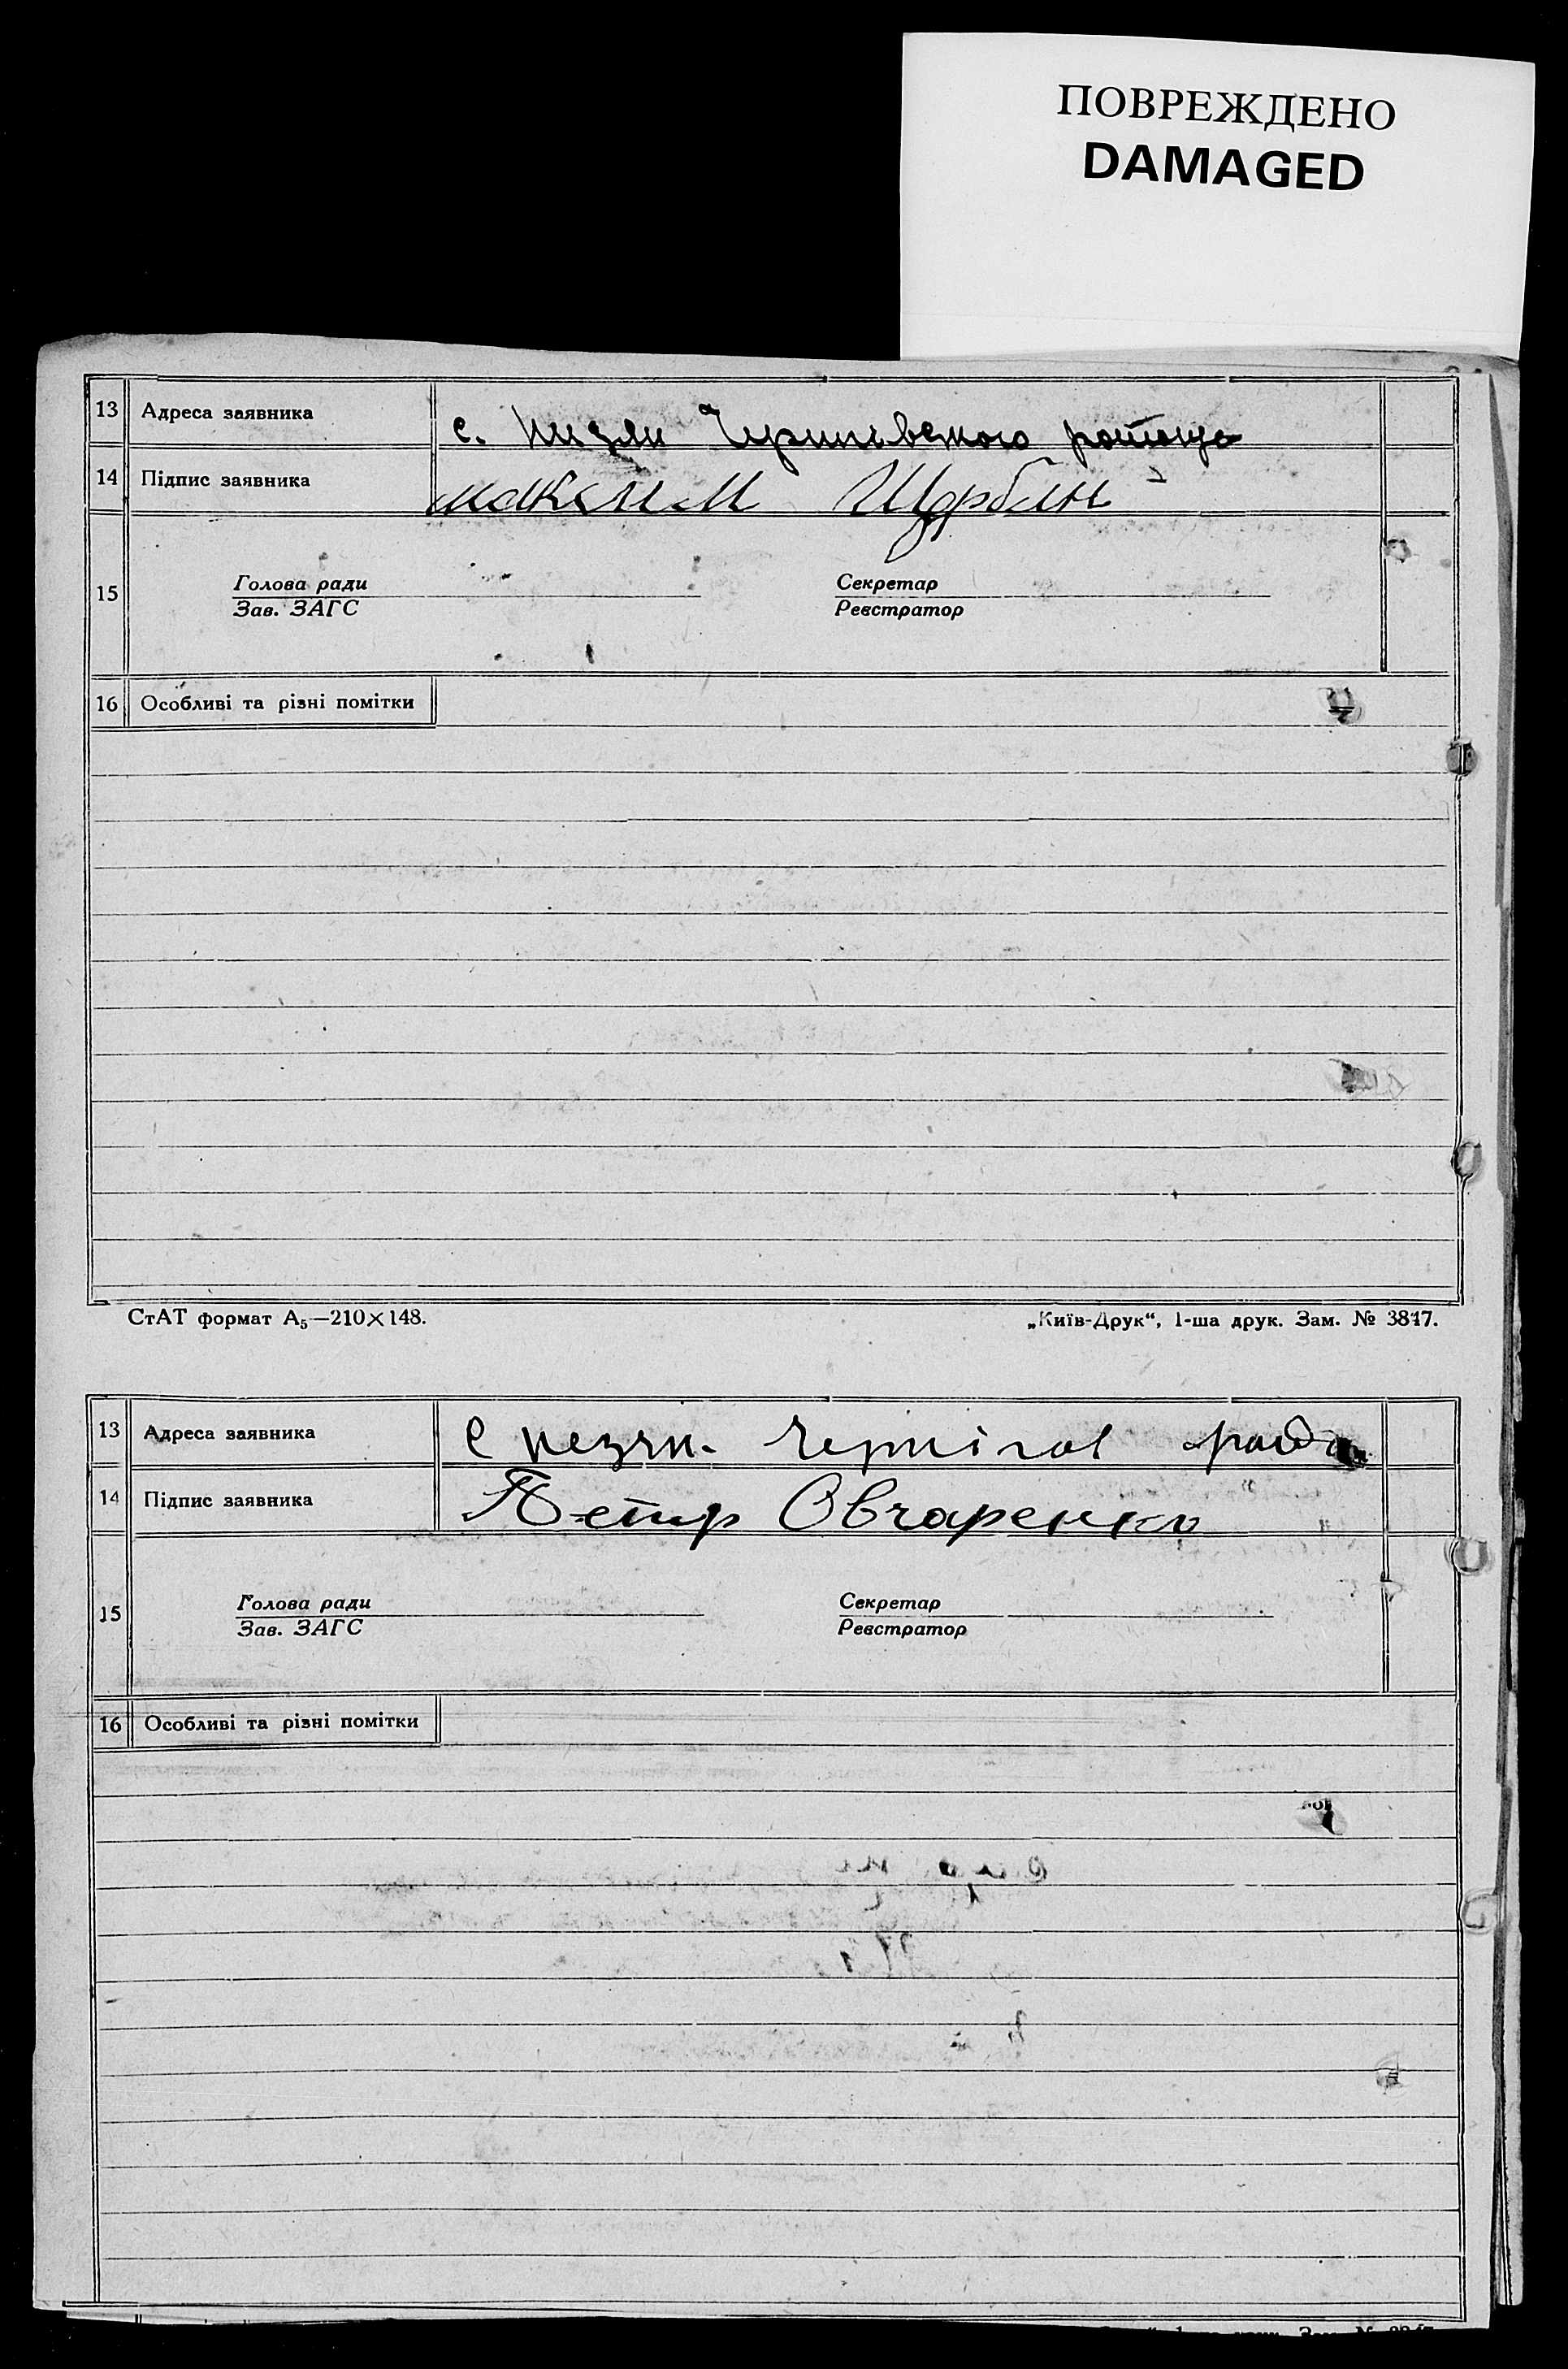 ПОВРЕЖДЕНО
DAMAGED
13 Адреса заявника с.
14 Підпис заявника Максим Щарбин
15 Голова ради Секретар
Зав. ЗАГС Реєстратор
16 Особливі та різні помітки
СтАТ формат А₅—210×148. „Київ-Друк“, 1-ша друк. Зам. № 3847.
13 Адреса заявника с Чернігов
14 Підпис заявника Петир Овчаренко
15 Голова ради Секретар
Зав. ЗАГС Реєстратор
16 Особливі та різні помітки